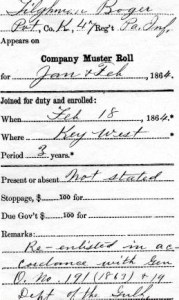 Tilghman Boger
Pvt, Co. K, 47 Reg't Pa. Inf.
Appears on
Company Muster Roll
for Jan & Feb, 1864.
Joined for duty and enrolled:
When Feb 18, 1864.*
Where Key West
Period 3 years.*
Present or absent Not stated
Stoppage, $ 100 for
Due Gov't $ 100 for
Remarks:
Re-enlisted in ac-
cordance with Gen
O. No. 191 (1863) & 19
Dept of the Gulf